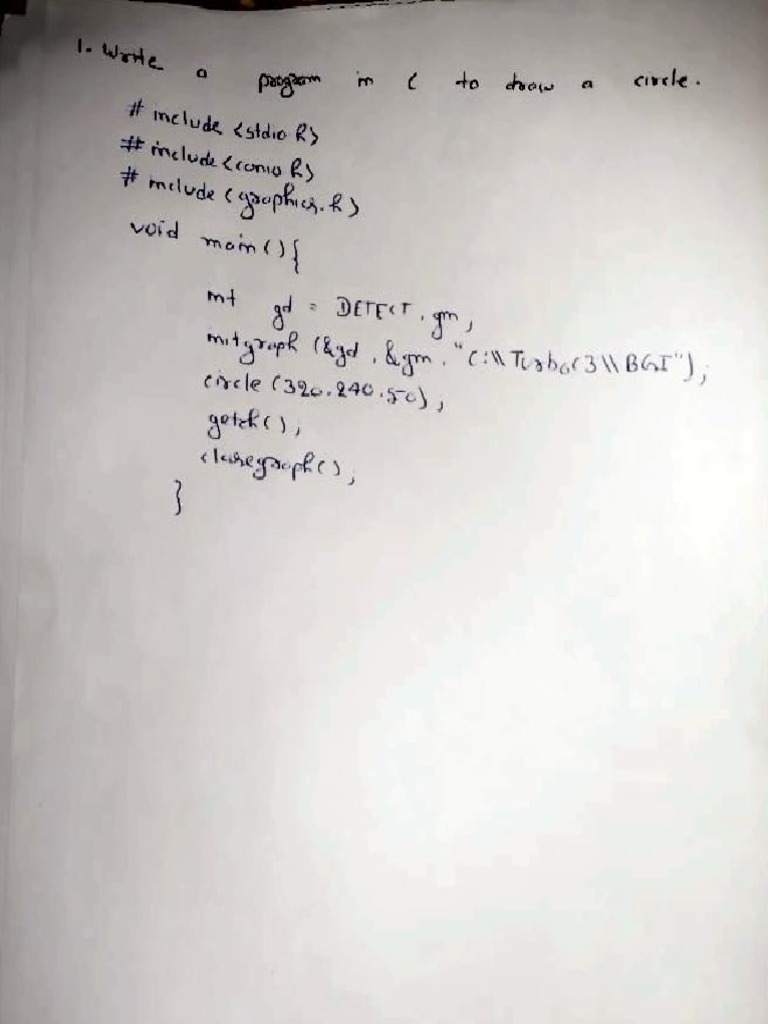 1. Write a program in C to draw a circle.
# include <stdio.h>
# include <conio.h>
# include <graphics.h>
void main() {
int gd = DETECT, gm;
initgraph (&gd, &gm, "C:\\TurboC3\\BGI");
circle (320, 240, 50);
getch();
closegraph();
}